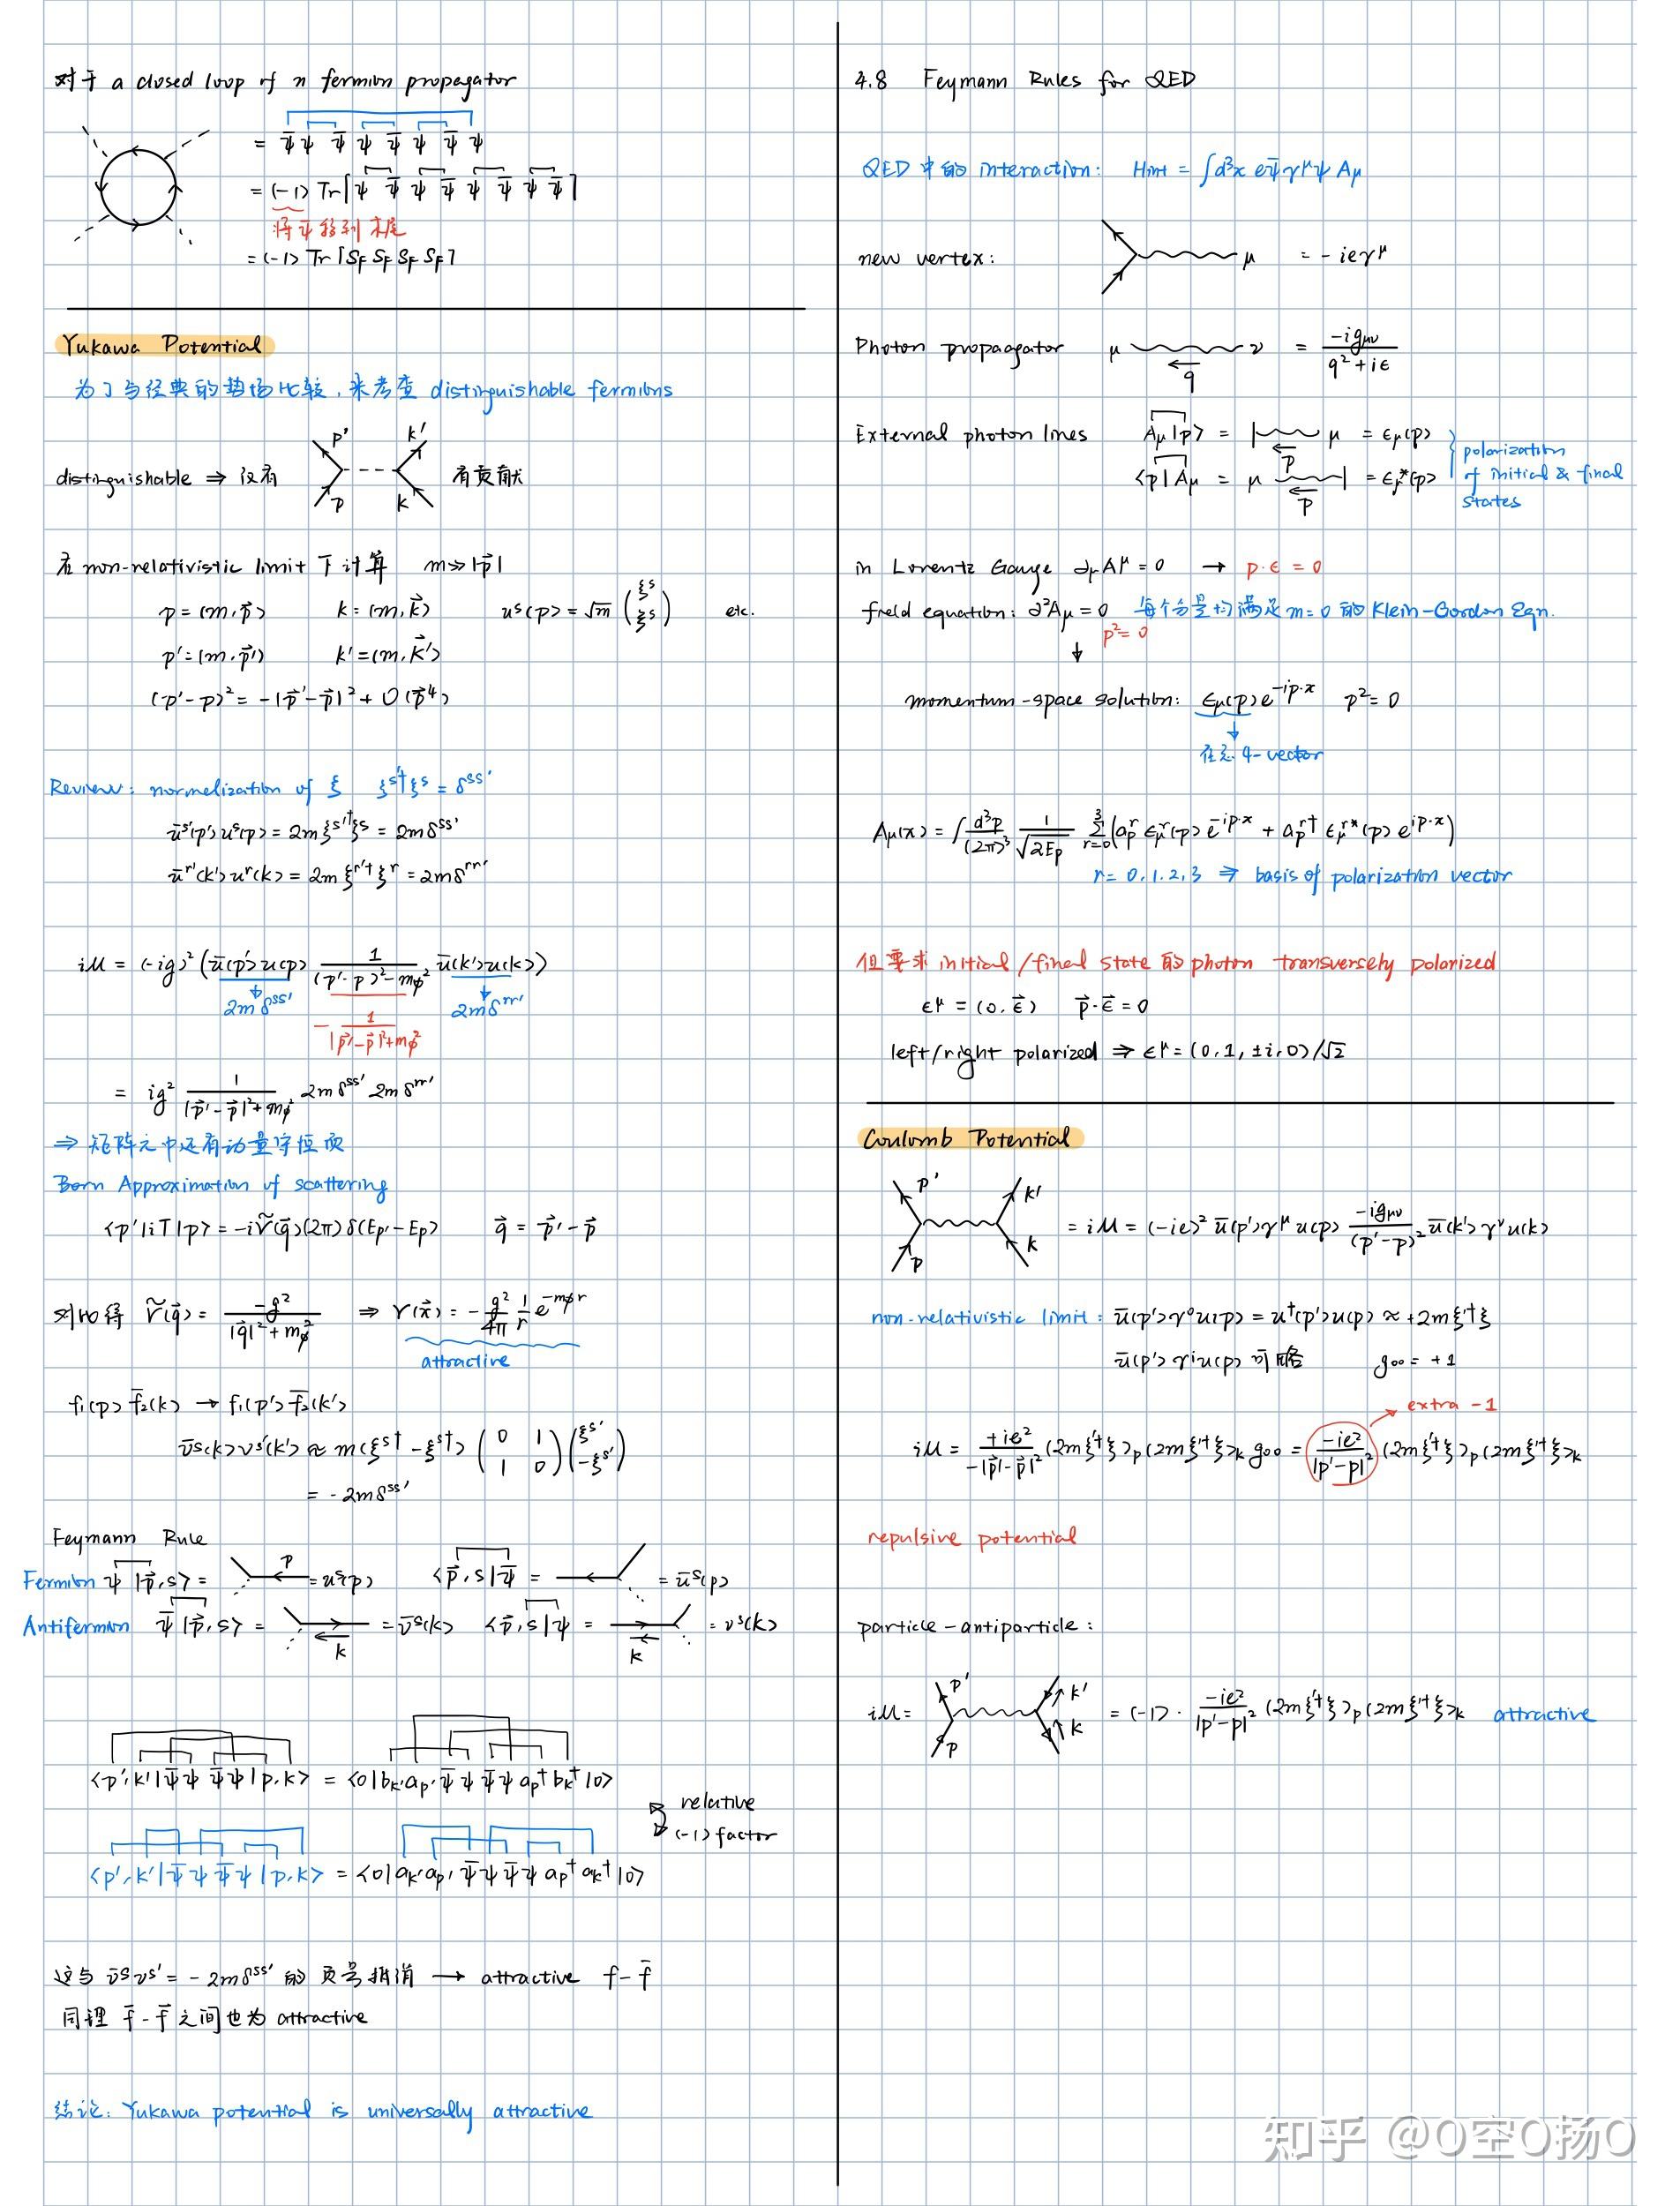 对于 a closed loop of n fermion propagator
= ψ̄ψ ψ̄ ψ ψ̄ ψ ψ̄ ψ
= (-1) Tr[ψ ψ̄ ψ ψ̄ ψ ψ̄ ψ ψ̄]
将ψ̄移到末尾
= (-1) Tr[S_F S_F S_F S_F]
Yukawa Potential
为了与经典的势场比较, 来考查 distinguishable fermions
distinguishable ⇒ 仅有 p' k' p k 有贡献
在 non-relativistic limit 下计算 m≫|p⃗|
p = (m, p⃗) k = (m, k⃗) u^s(p) = √m (ξ^s ξ^s) etc.
p' = (m, p⃗') k' = (m, k⃗')
(p'-p)² = -|p⃗'-p⃗|² + O(p⃗⁴)
Review: normelization of ξ ξ^{s'†}ξ^s = δ^{ss'}
ū^{s'}(p')u^s(p) = 2mξ^{s'†}ξ^s = 2mδ^{ss'}
ū^{r'}(k')u^r(k) = 2mξ^{r'†}ξ^r = 2mδ^{rr'}
iM = (-ig)² (ū(p')u(p) 1/((p'-p)²-m_φ²) ū(k')u(k))
2mδ^{ss'} -1/(|p⃗'-p⃗|²+m_φ²) 2mδ^{rr'}
= ig² 1/(|p⃗'-p⃗|²+m_φ²) 2mδ^{ss'} 2mδ^{rr'}
⇒ 矩阵元中还有动量守恒项
Born Approximation of scattering
<p'|iT|p> = -iṼ(q⃗)(2π)δ(E_p'-E_p) q⃗ = p⃗'-p⃗
对比得 Ṽ(q⃗) = -g²/(|q⃗|²+m_φ²) ⇒ V(x⃗) = -g²/4π 1/r e^{-m_φ r}
attractive
f₁(p) f̄₂(k) → f₁(p') f̄₂(k')
v̄^s(k)v^{s'}(k') ≈ m(ξ^{s†} -ξ^{s†}) (0 1 1 0)(ξ^{s'} -ξ^{s'})
= -2mδ^{ss'}
Feymann Rule
Fermion ψ|p⃗,s> = p = u^s(p) <p⃗,s|ψ̄ = = ū^s(p)
Antifermion ψ̄|p⃗,s> = k = v̄^s(k) <p⃗,s|ψ = k = v^s(k)
<p',k'|ψ̄ψ ψ̄ψ|p,k> = <0|b_k' a_p' ψ̄ψ ψ̄ψ a_p† b_k†|0>
relative
(-1) factor
<p',k'|ψ̄ψ ψ̄ψ|p,k> = <0|a_k' a_p' ψ̄ψ ψ̄ψ a_p† a_k†|0>
这与 v̄^s v^{s'} = -2mδ^{ss'} 的负号抵消 → attractive f-f̄
同理 f̄-f̄ 之间也为 attractive
结论: Yukawa potential is universally attractive
4.8 Feymann Rules for QED
QED 中的 interaction: H_int = ∫d³x eψ̄γ^μψ A_μ
new vertex: μ = -ieγ^μ
Photon propagator μ ν q = -ig_μν/(q²+iε)
External photon lines A_μ|p> = p μ = ε_μ(p)
<p|A_μ = μ p = ε_μ*(p)
polarization
of initial & final
states
in Lorentz Gauge ∂_μA^μ = 0 → p·ε = 0
field equation: ∂²A_μ = 0 每个分量均满足 m=0 的 Klein-Gordon Eqn.
p²=0
momentum-space solution: ε_μ(p)e^{-ip·x} p²=0
任意 4-vector
A_μ(x) = ∫d³p/(2π)³ 1/√2E_p Σ_{r=0}^{3} (a_p^r ε_μ^r(p) e^{-ip·x} + a_p^{r†} ε_μ^{r*}(p) e^{ip·x})
r = 0.1.2.3 ⇒ basis of polarization vector
但要求 initial/final state 的 photon transversely polarized
ε^μ = (0, ε⃗) p⃗·ε⃗ = 0
left/right polarized ⇒ ε^μ = (0, 1, ±i, 0)/√2
Coulomb Potential
p' k' p k = iM = (-ie)² ū(p')γ^μu(p) -ig_μν/(p'-p)² ū(k')γ^νu(k)
non-relativistic limit: ū(p')γ⁰u(p) = u†(p')u(p) ≈ +2mξ'†ξ
ū(p')γ^iu(p) 可略 g₀₀ = +1
extra -1
iM = +ie²/-|p⃗'-p⃗|² (2mξ'†ξ)_p (2mξ'†ξ)_k g₀₀ = -ie²/|p'-p|² (2mξ'†ξ)_p (2mξ'†ξ)_k
repulsive potential
particle-antiparticle:
iM = p' k' p k = (-1)· -ie²/|p'-p|² (2mξ'†ξ)_p (2mξ'†ξ)_k attractive
知乎 @O空O扬O